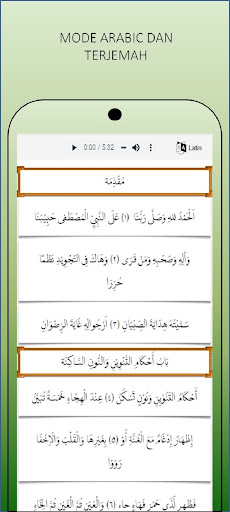 MODE ARABIC DAN
TERJEMAH
0:00 / 5:32
Latin
مُقَدِّمَة
اَلْحَمْدُ للهِ وَصَلَّى رَبُّنَا (١) عَلَى النَّبِيِّ الْمُصْطَفَى حَبِيْبَنَا
وَأٰلِهِ وَصَحْبِهِ وَمَنْ قَرَى (٢) وَهَاكَ فِى التَّجْوِيْدِ نَظْمًا
حُرِّرَا
سَمَّيْتُهُ هِدَايَةَ الصِّبْيَانِ (٣) اَرْجُوالهِ غَايَةَ الرِّضْوَانِ
بَابُ أَحْكَامِ التَّنْوِيْنِ وَالنُّوْنِ السَّاكِنَة
أَحْكَامُ التَّنْوِيْنِ وَنُوْنٍ تَسْكُنُ (٤) عِنْدَ الْهِجَاءِ خَمْسَةٌ تُبَيَّنُ
اِظْهَارُ اِدْغَامٌ مَعَ الْغُنَّةِ أَوْ (٥) بِغَيْرِهَا وَالْقَلْبُ وَالْاِخْفَا
رَوَوْا
فَاظْهِرْ لَدَى هَمْزٍ فَهَاءٍ حَاءِ (٦) وَالْعَيْنِ ثُمَّ الْغَيْنِ ثُمَّ الْخَاءِ